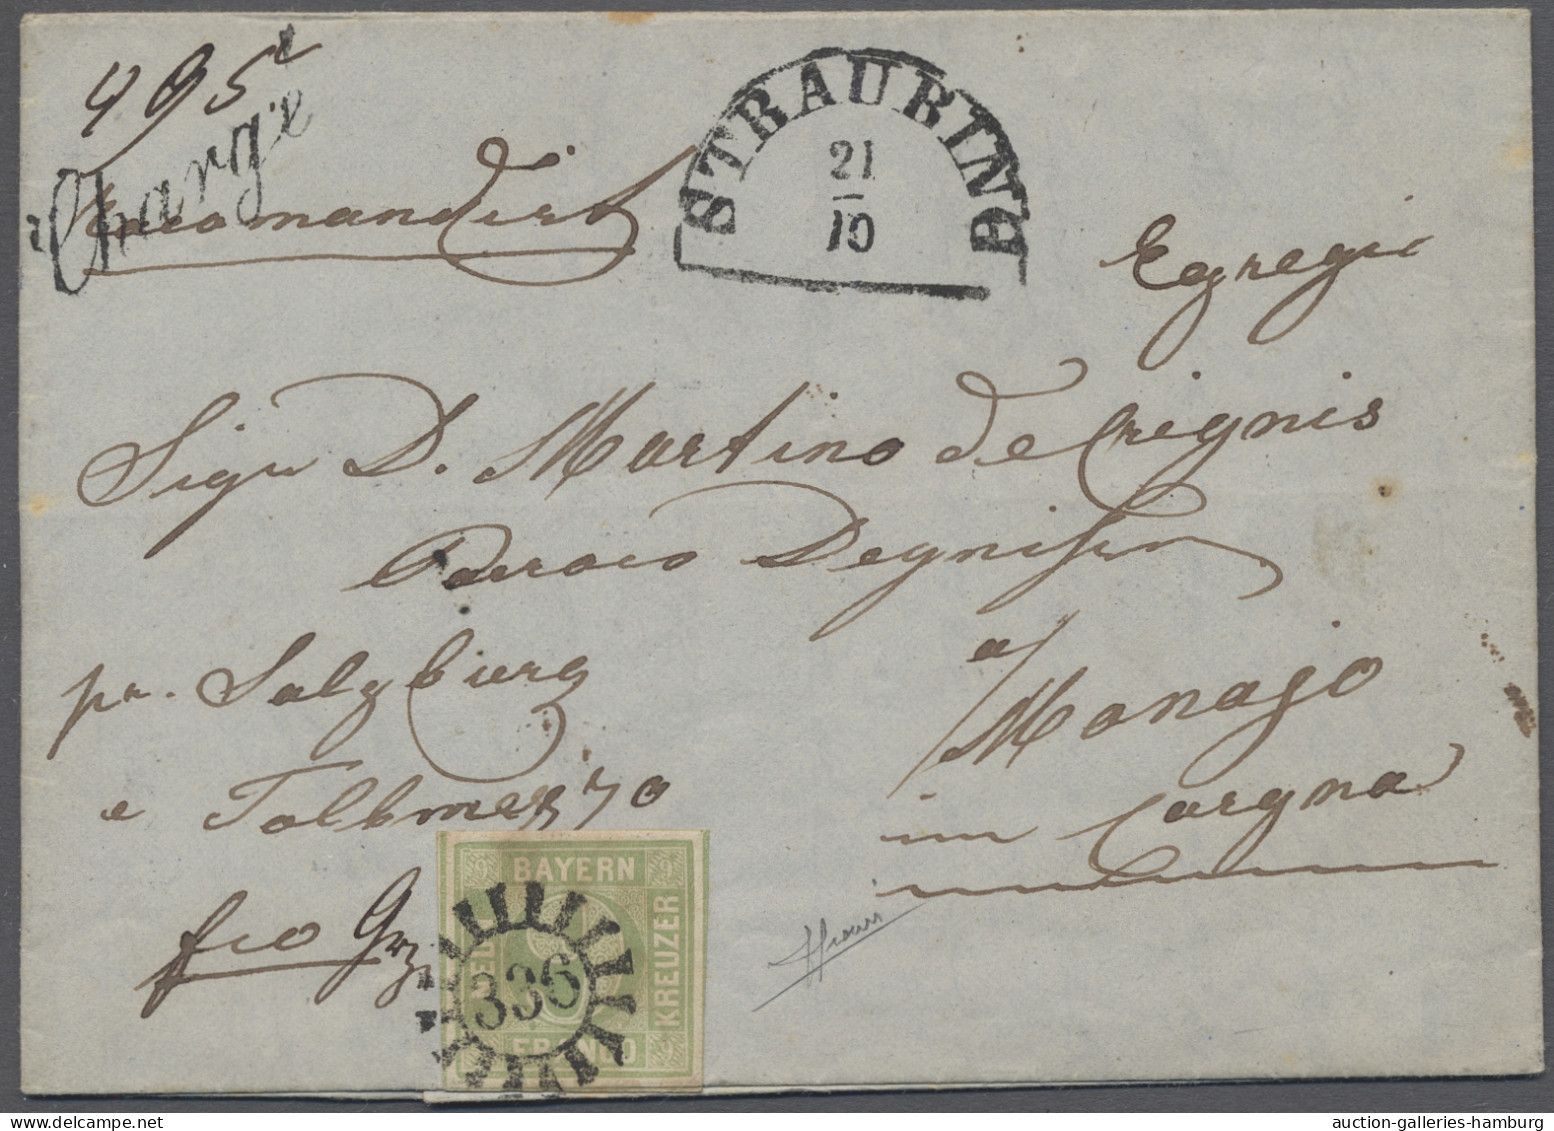 495
Chargé
Racomandirt
STRAUBING
21
10
Egregio
Sigr D. Martino de Crignis
Parroco Degnissimo
a
Monajo
in Cargna
pr. Salzburg
e Tollmezzo
fco Grz
BAYERN
KREUZER
FRANCO
336
auction-galleries-hamburg